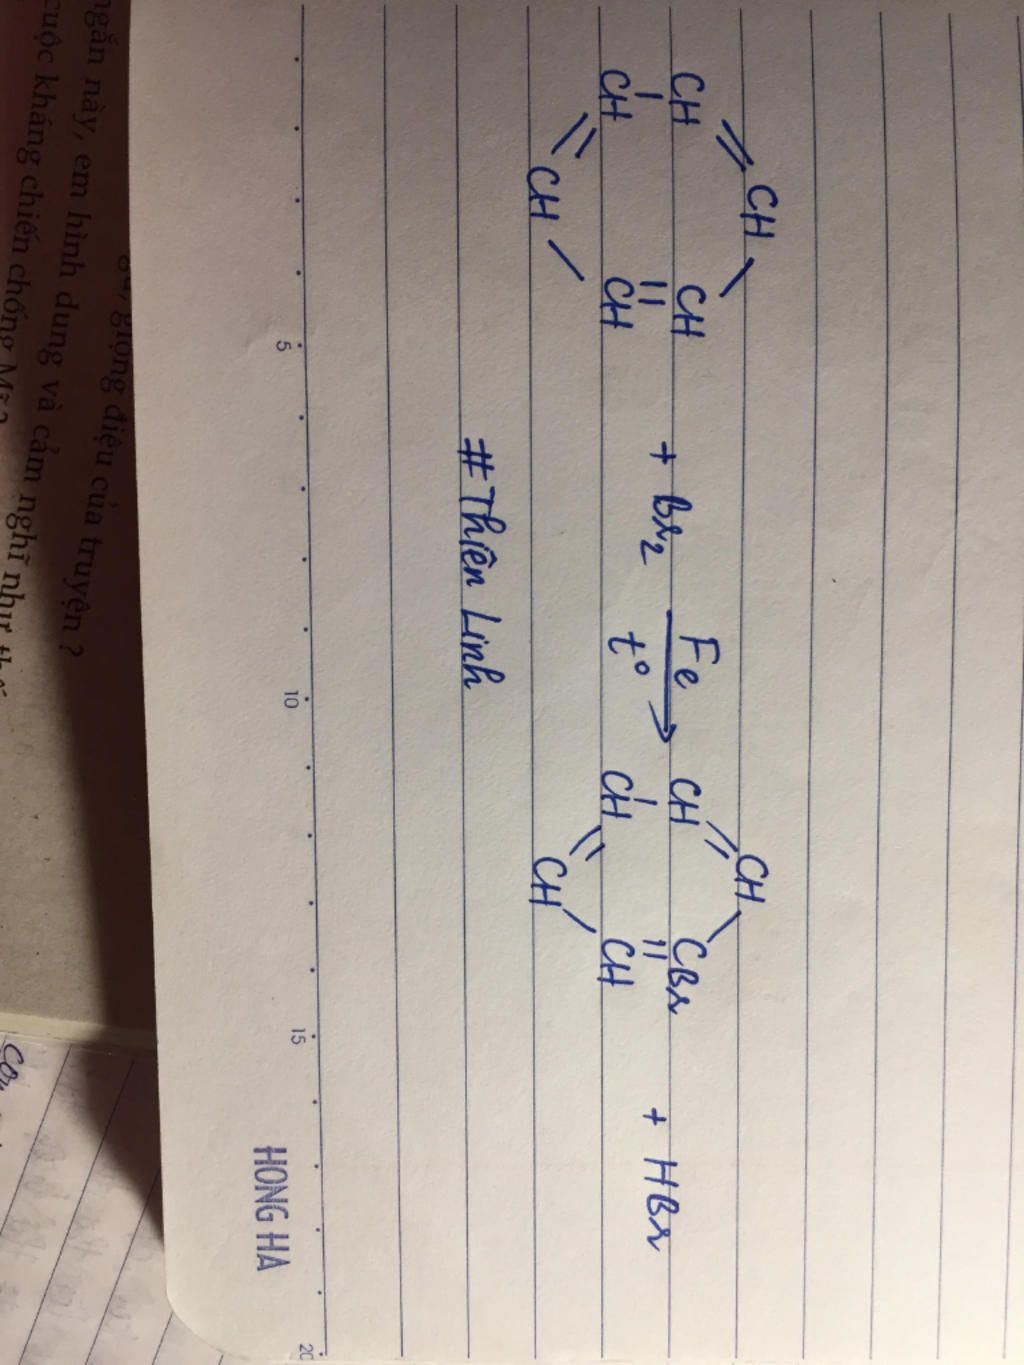 CH
CH CH
CH CH
CH
+ Br2
Fe
t°
CH
CH CBr
CH CH
CH
+ HBr
#Thiên Linh
5 10 15 20
HONG HA
giọng điệu của truyện ?
ngắn này, em hình dung và cảm nghĩ như
cuộc kháng chiến chống